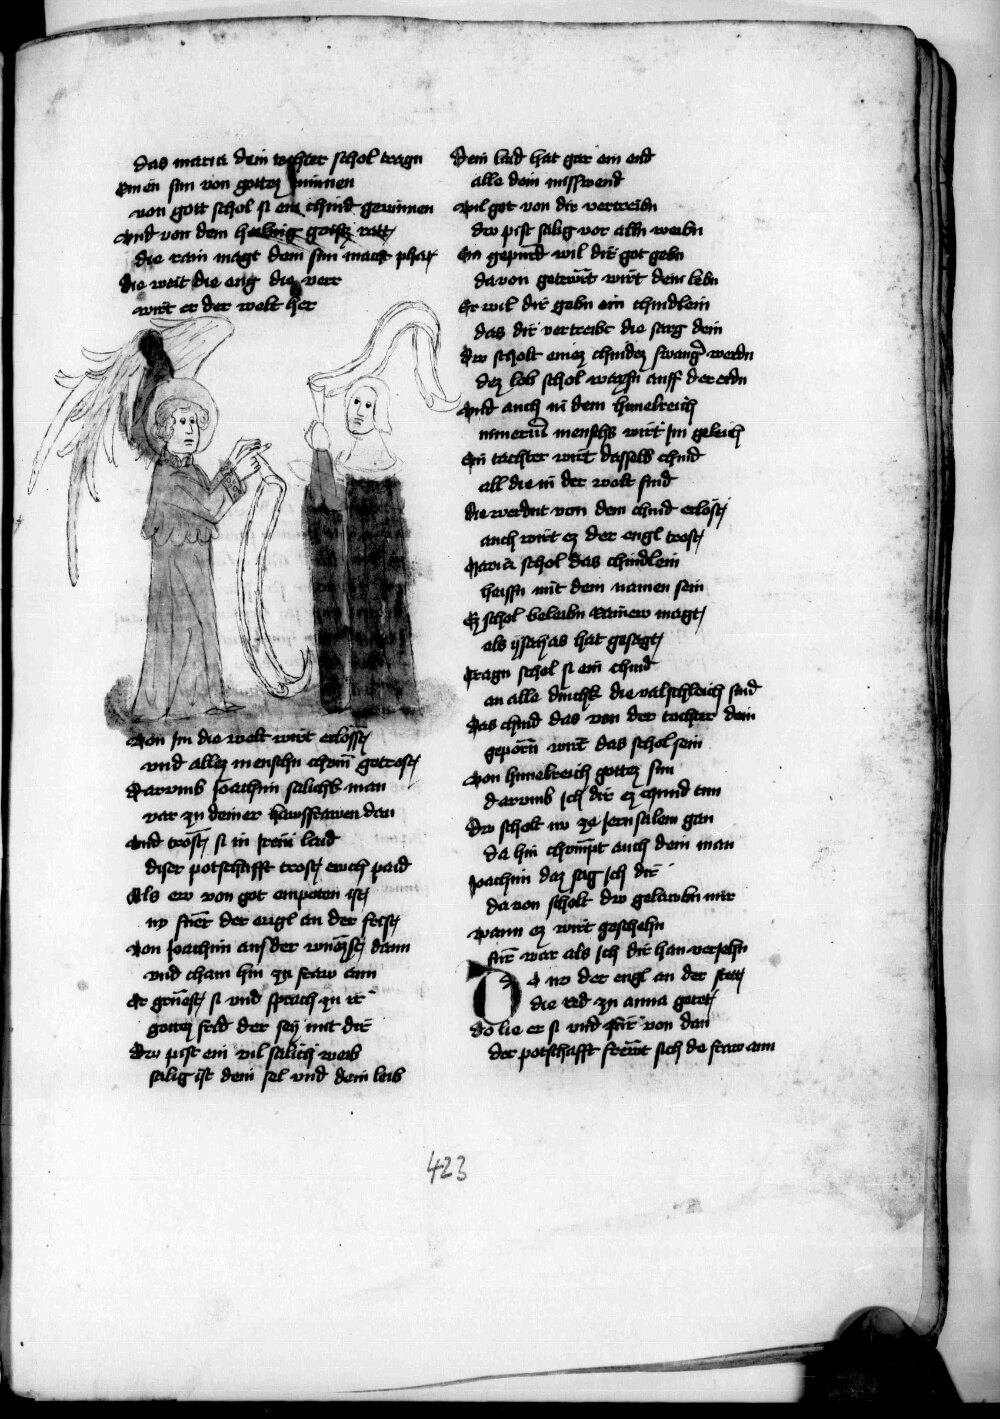 das maria dein tochter schol tragn
Einen sun von gottez minnen
von gott schol si ein chind gewinnen
Vnd von dem heilig geistz ratt
die rain magt dein sun macht phat
die weit die eng die verr
wirt er der welt her
Von im die welt wirt erlosst
vnd allez menschn chom getrost
Darvmb Joachim salichs man
var zu deiner hawsfrawen dan
Vnd trost si in irem laid
diser potschafft trost ewch paid
Als ew von got enpoten ist
nv fuer der engl an der frist
Von Joachim aus der wuest dann
vnd cham hin zu fraw ann
Er gruest si vnd sprach zu ir
gottez frid der sey mit dir
Dw pist ein vil salich weib
salig ist dein sel vnd dein leib
Dein laid hat gar ein end
alle dein misswend
Wil got von dir vertreibn
dw pist salig vor alln weibn
Ein gepurd wil dir got gebn
da von getrost wirt dein lebn
Er wil dir gebn ein chindlein
das dir vertreibt die sarg dein
Dw scholt einez chindez swanger werdn
dez lob schol waxsn auff der erdn
Vnd auch in dem himelreich
nimer menschs wirt im geleich
Ein tochter wirt dasselb chind
all die in der welt sind
Die werdnt von dem chind erlost
auch wirt ez der engl trost
Maria schol das chindlein
haissn mit dem namen sein
Ez schol beleibn rainew magt
als ysayas hat gesagt
Tragn schol si ein chind
an alle die valschleich sind
Das chind das von der tochter dein
geporn wirt das schol sein
Von himelreich gottez sun
darvmb ich dir ez chund tun
Dw scholt nv ze Jerusalem gan
da hin chompt auch dein man
Joachim daz sag ich dir
da von scholt dw gelawbn mir
Wann ez wirt geschehn
fuer war als ich dir han verjehn
Do nv der engl an der stett
die red zu anna getet
Do lie er si vnd fuer von dan
der potschafft frewt sich de fraw ann
423